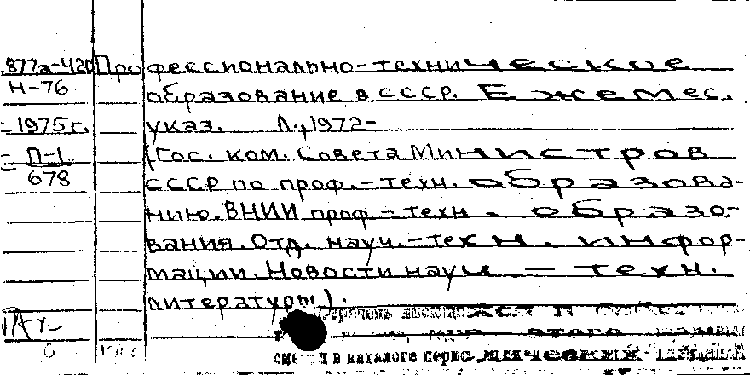 877а-420 Профессионально-техническое
Н-76 образование в СССР. Ежемес.
1975г. указ. Л., 1972-
П-1 (Гос. ком. Совета Министров
678 СССР по проф.-техн. образова-
нию. ВНИИ проф.-техн. образо-
вания. Отд. науч.-техн. инфор-
мации. Новости науч.-техн.
литературы).
в каталоге